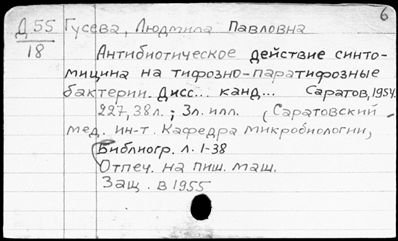 6
Д 55 Гусева, Людмила Павловна
18
Антибиотическое действие синто-
мицина на тифозно-паратифозные
бактерии. Дисс... канд... Саратов, 1954.
227, 38 л.; 3 л. илл. (Саратовский
мед. ин-т. Кафедра микробиологии,
Библиогр. л. 1-38
Отпеч. на пиш. маш.
Защ. в 1955